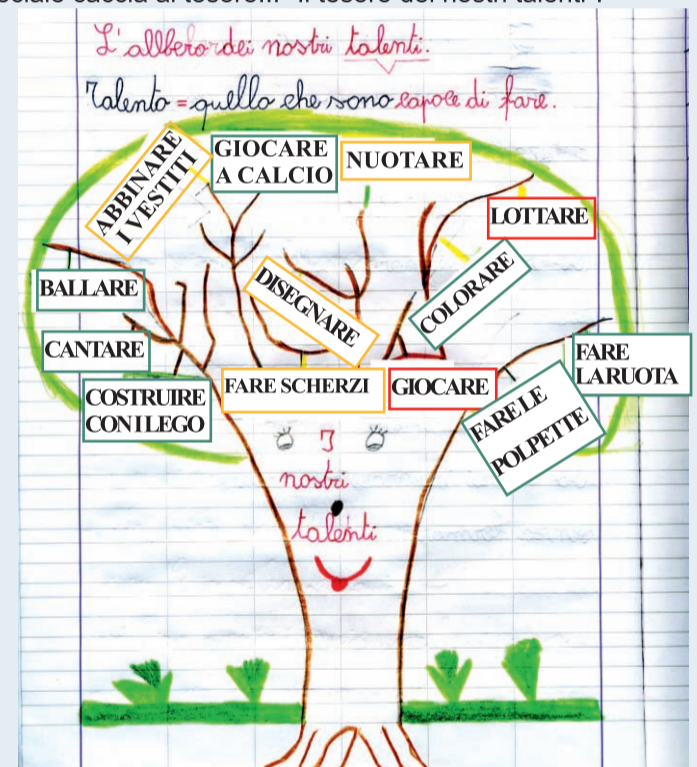 L'allbero dei nostri talenti.
Talento = quello che sono capace di fare.
ABBINARE
I VESTITI
GIOCARE
A CALCIO
NUOTARE
LOTTARE
BALLARE
DISEGNARE
COLORARE
CANTARE
FARE
LA RUOTA
COSTRUIRE
CON I LEGO
FARE SCHERZI
GIOCARE
FARE LE
POLPETTE
I
nostri
talenti